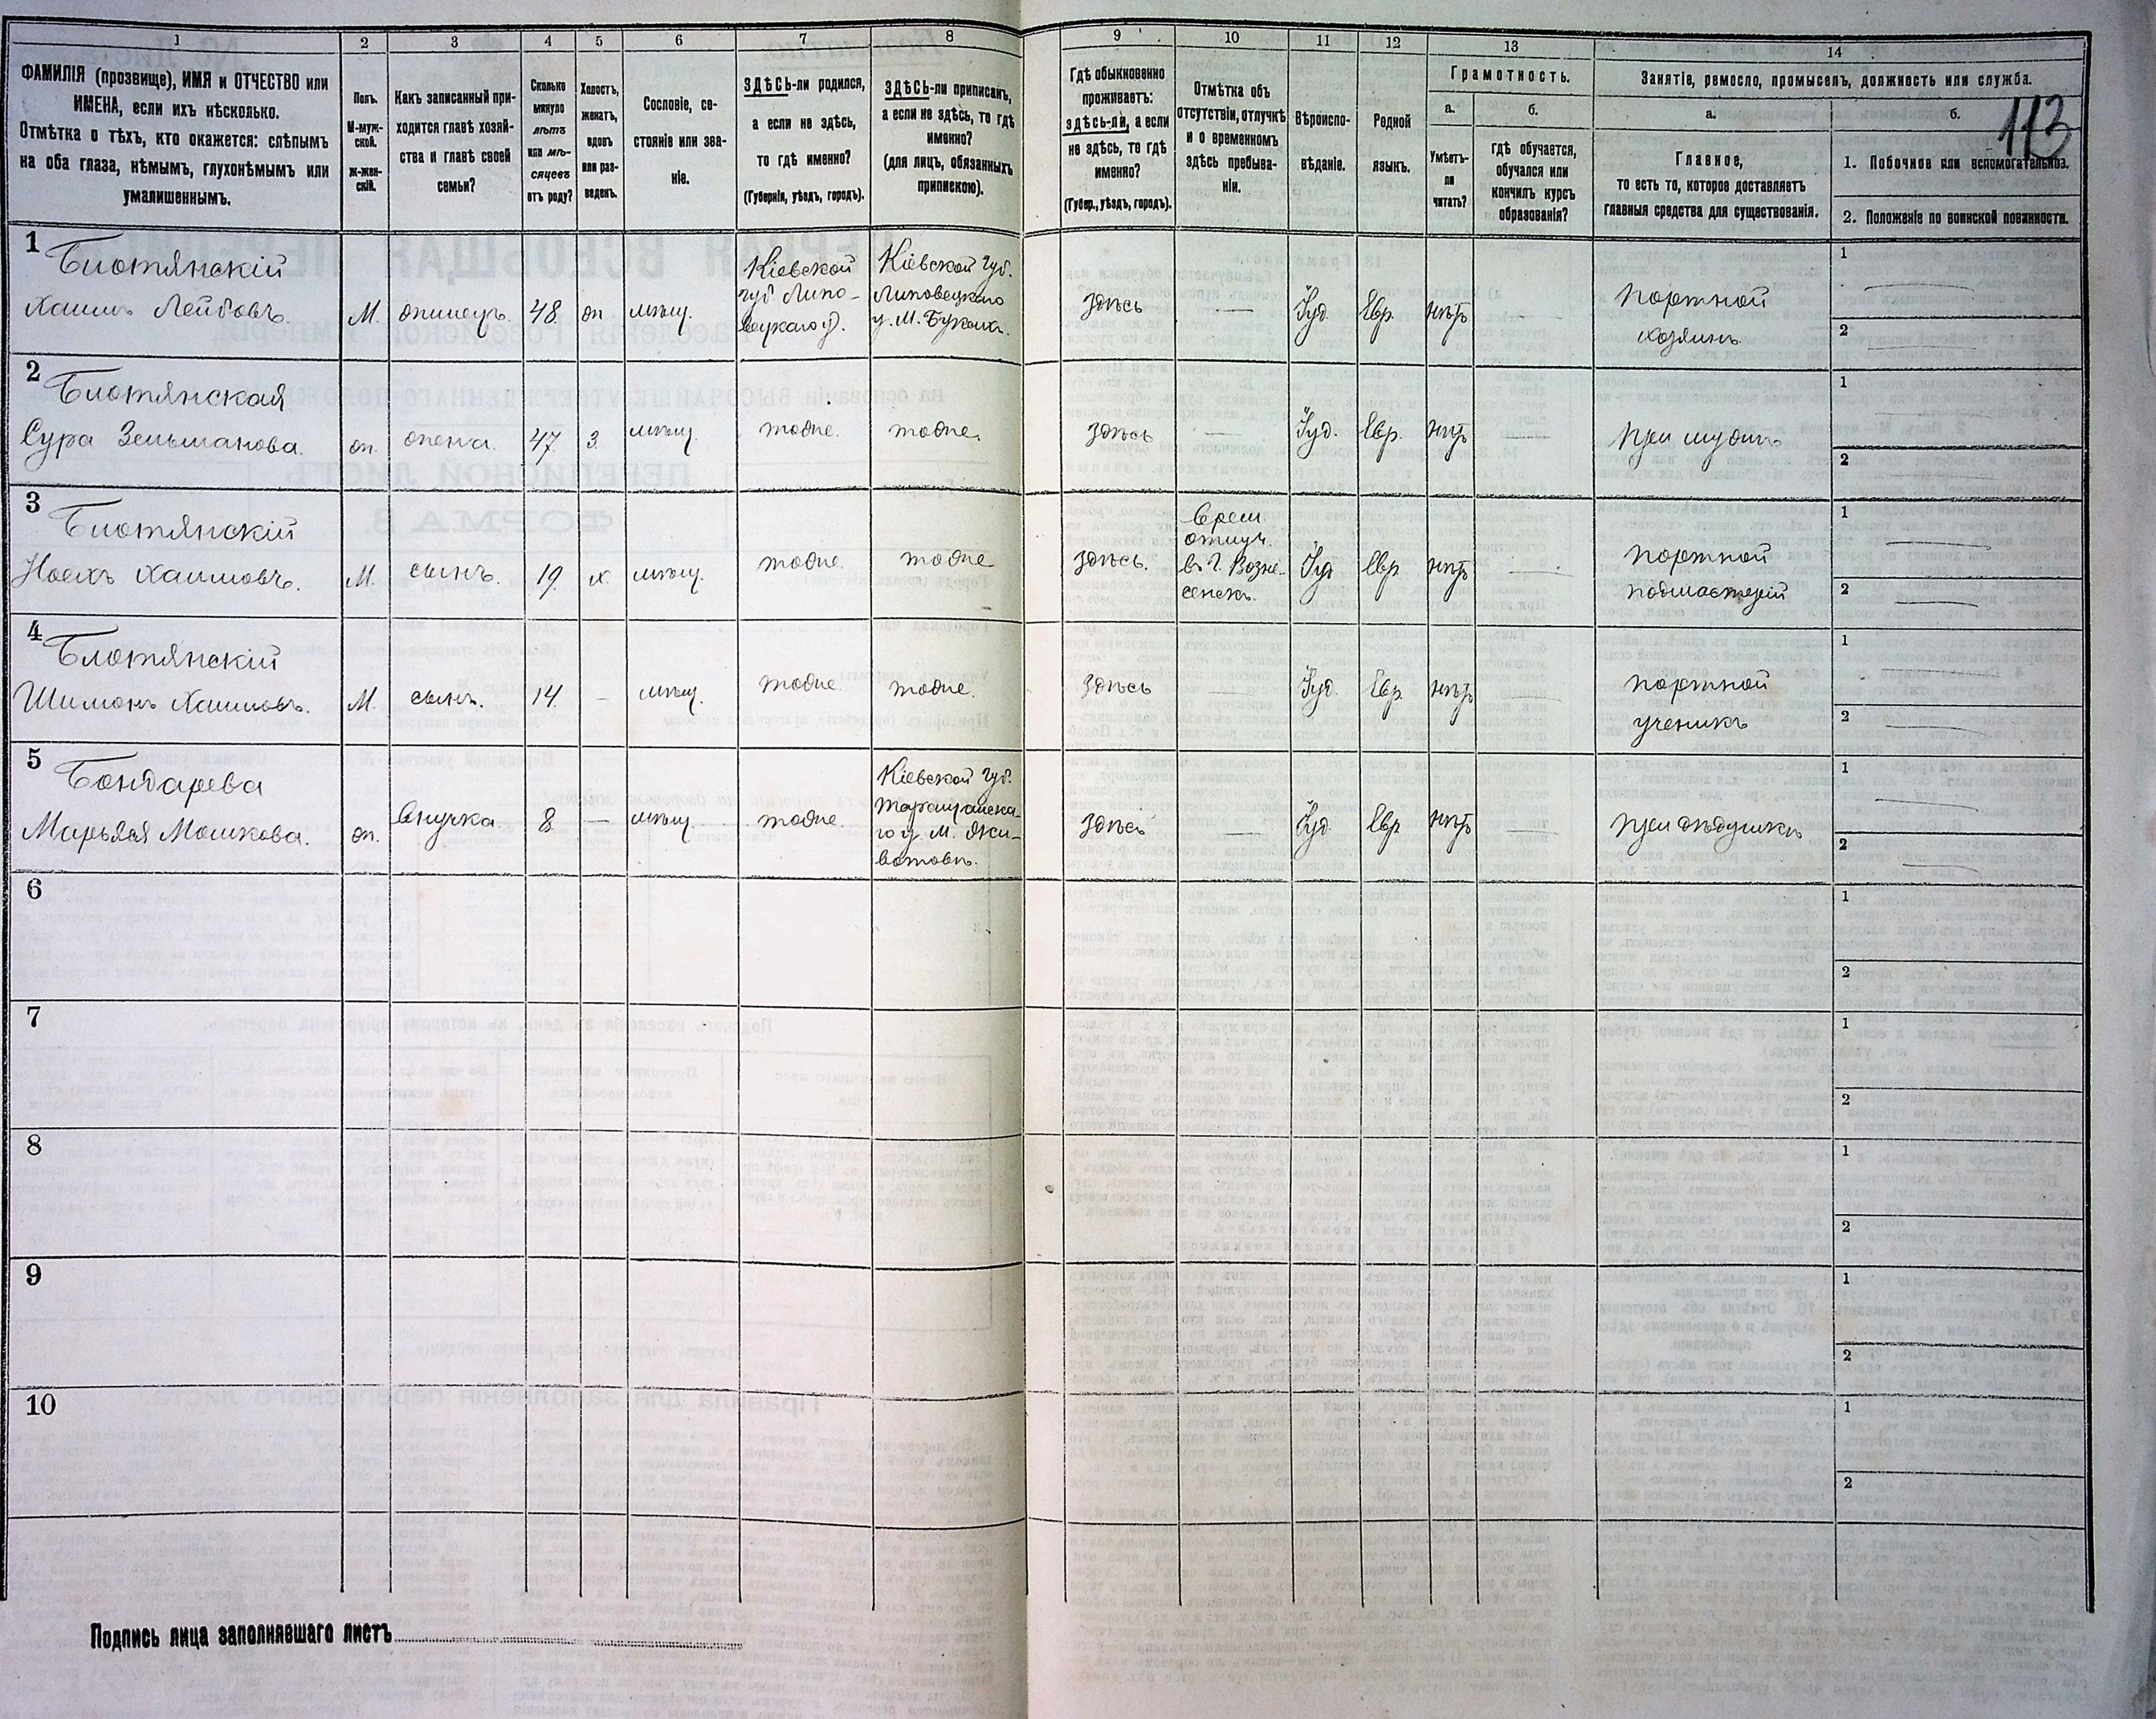 1 2 3 4 5 6 7 8 9 10 11 12 13 14
113
ФАМИЛІЯ (прозвище), ИМЯ и ОТЧЕСТВО или
ИМЕНА, если ихъ нѣсколько.
Отмѣтка о тѣхъ, кто окажется: слѣпымъ
на оба глаза, нѣмымъ, глухонѣмымъ или
умалишеннымъ.
Полъ.
М-муж-
ской.
ж-жен-
скій.
Какъ записанный при-
ходится главѣ хозяй-
ства и главѣ своей
семьи?
Сколько
минуло
лѣтъ
или мѣ-
сяцевъ
отъ роду?
Холостъ,
женатъ,
вдовъ
или раз-
веденъ.
Сословіе, со-
стояніе или зва-
ніе.
ЗДѢСЬ-ли родился,
а если не здѣсь,
то гдѣ именно?
(Губернія, уѣздъ, городъ).
ЗДѢСЬ-ли приписанъ,
а если не здѣсь, то гдѣ
именно?
(для лицъ, обязанныхъ
припискою).
Гдѣ обыкновенно
проживаетъ:
здѣсь-ли, а если
не здѣсь, то гдѣ
именно?
(Губер., уѣздъ, городъ).
Отмѣтка объ
отсутствіи, отлучкѣ
и о временномъ
здѣсь пребыва-
ніи.
Вѣроиспо-
вѣданіе.
Родной
языкъ.
Грамотность.
а.
Умѣетъ-
ли
читать?
б.
гдѣ обучается,
обучался или
кончилъ курсъ
образованія?
Занятіе, ремесло, промыселъ, должность или служба.
а.
Главное,
то есть то, которое доставляетъ
главныя средства для существованія.
б.
1. Побочное или вспомогательное.
2. Положеніе по воинской повинности.
1
Блотянскій
Хаимъ Лейбовъ.
М.
48.
мѣщ.
Кіевской
губ. Липо-
вецкаго у.
Кіевской губ.
Липовецкаго
у. М.
здѣсь
—
Іуд.
Евр.
нѣтъ
портной
хозяинъ
1
2
2
Блотянская
Сура Зельманова.
ж.
жена.
47.
З.
мѣщ.
тоже.
тоже.
здѣсь
—
Іуд.
Евр.
нѣтъ
—
при мужѣ
1
2
3
Блотянскій
Ноехъ Хаимовъ.
М.
сынъ.
19.
х.
мѣщ.
тоже.
тоже
здѣсь.
Врем.
отлуч.
въ г. Возне-
сенскъ.
Іуд.
Евр.
нѣтъ
—
портной
подмастерій
1
2
4
Блотянскій
Шимонъ Хаимовъ.
М.
сынъ.
14.
—
мѣщ.
тоже.
тоже.
здѣсь
—
Іуд.
Евр.
нѣтъ
—
портной
ученикъ
1
2
5
Бондарева
Марьяся Мошкова.
ж.
внучка.
8
—
мѣщ.
тоже.
Кіевской губ.
Таращанска-
го у. М. Жи-
вотовъ.
здѣсь
—
Іуд.
Евр
нѣтъ
—
при дѣдушкѣ
1
2
6
1
2
7
1
2
8
1
2
9
1
2
10
1
2
Подпись лица заполнявшаго листъ